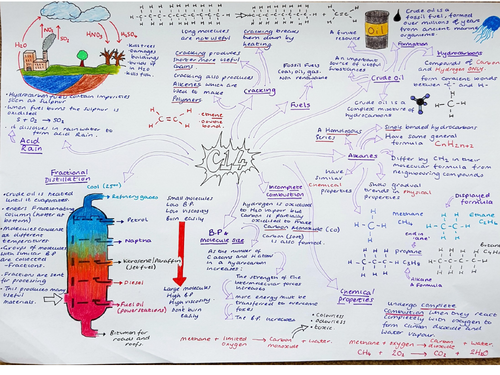 H₂O
NO₂
SO₂
HNO₃
H₂SO₄
Kills trees
damages
buildings
dissolves
in H₂O
kills fish.
• Hydrocarbon fuels contain impurities
such as Sulphur
• When fuel burns the sulphur is
oxidised
S + O₂ → SO₂
• It dissolves in rainwater to
form acid Rain.
Acid
Rain
Long molecules
are not useful
Cracking breaks
them down by
heating
Cracking produces
shorter more useful
chains
Cracking also produces
Alkenes which are
used to make
Polymers
Cracking
• ethene
• double
bond.
Fossil Fuels
Coal, oil, gas.
Non renewable
Fuels
A finite
resource
An important
source of useful
substances
Crude oil
Oil
Crude oil is a
fossil fuel, formed
over millions of years
from ancient marine
organisms
Formation
Crude oil is a
complex mixture of
hydrocarbons
Hydrocarbons
Compounds of Carbon
and Hydrogen only
form covalent bonds
between C and H
C14
A Homologous
Series
Alkanes
Single bonded hydrocarbons
Have same general
formula CnH2n+2
Differ by CH₂ in their
molecular formula from
neighbouring compounds
Have
Similar
Chemical properties
Show gradual
trends in Physical
Properties
Displayed
formula
methane
CH₄
ethane
C₂H₆
end in
'ane'
propane
C₃H₈
Alkane
& Formula
Fractional
Distillation
Cool (25°c)
• Crude oil is heated
until it evaporates
• enters fractionating
column (hotter at
bottom)
• Molecules condense
at different
temperatures
• Groups of molecules
with similar BP
are collected
Fractions.
• Fractions are sent for
processing
• This produces many
useful
materials.
Refinery gases
Petrol
Naptha
Kerosine/Paraffin
(Jet fuel)
Diesel
Fuel oil
(powerstations)
Bitumen for
roads and
roofs.
Small molecules
Low BP
Low viscosity
burn easily
Large molecules
High BP
High viscosity
dont burn
easily
BP &
molecule size
As the number of
C atoms and H atoms
in a hydrocarbon
increases
The strength of the
intermolecular forces
increases
More energy must be
transferred to overcome
forces
The BP increases
Incomplete
Combustion
Hydrogen is oxidised
to H₂O Vapour but
Carbon is partially
Oxidised to make
Carbon Monoxide (CO)
Carbon (soot)
is also formed
• Colourless
• Odourless
• toxic
methane + limited oxygen → Carbon monoxide + water.
Chemical
properties
Undergo complete
Combustion when they react
completely with oxygen to
form carbon dioxide and
water vapour
methane + oxygen → carbon dioxide + water.
CH₄ + 2O₂ → CO₂ + 2H₂O